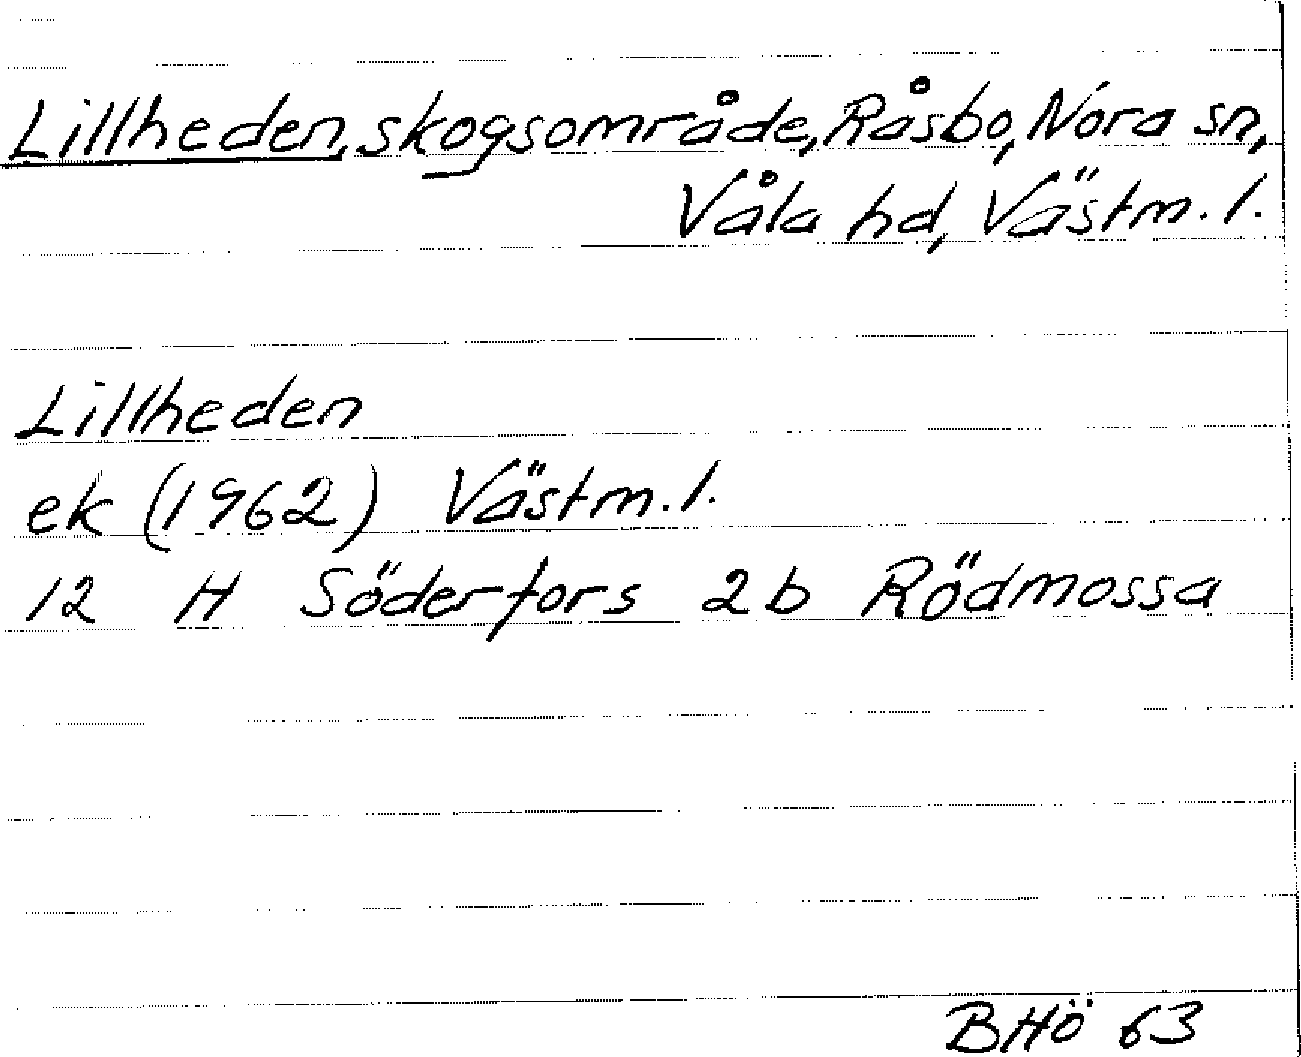 Lillheden, skogsområde, Råsbo, Nora sn,
Våla hd, Västm. l.
Lillheden
ek (1962) Västm. l.
12 H Söderfors 2b Rödmossa
BHö 63